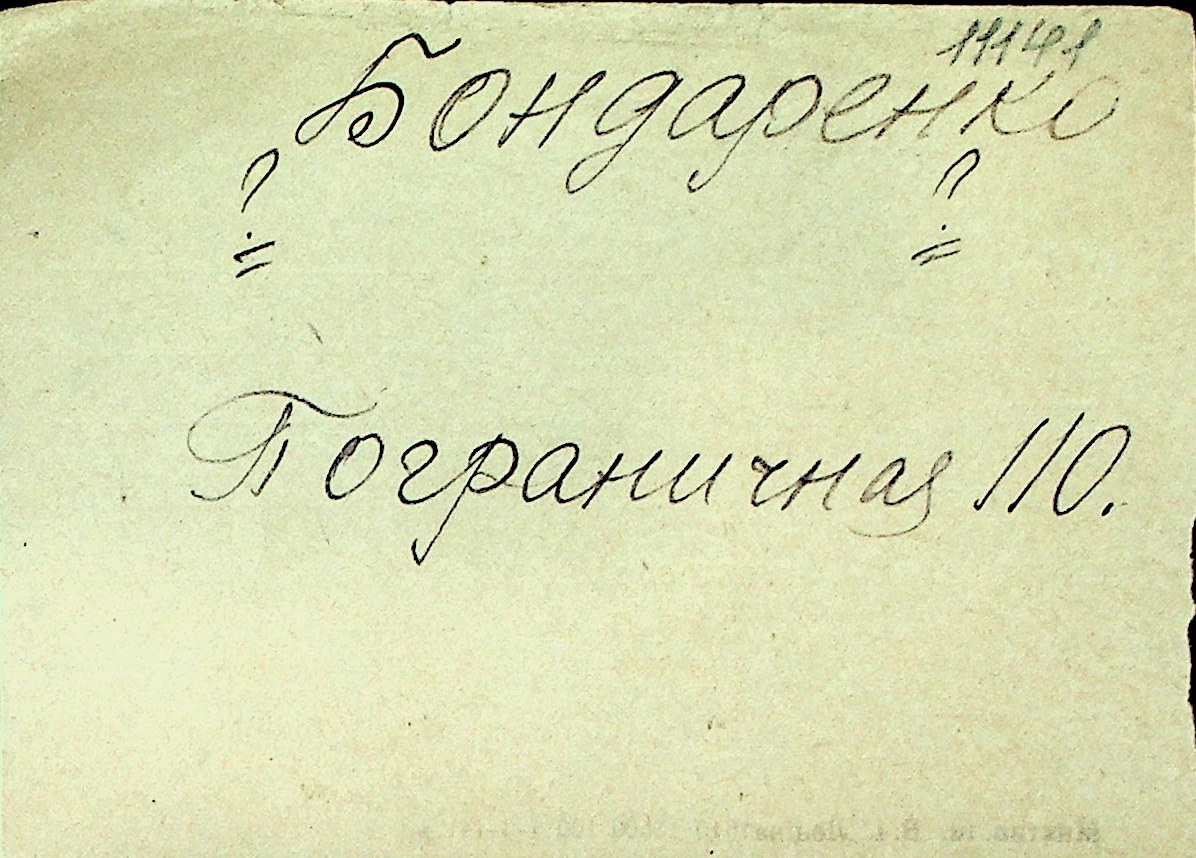 11141
Бондаренко
? ?
Пограничная 110.